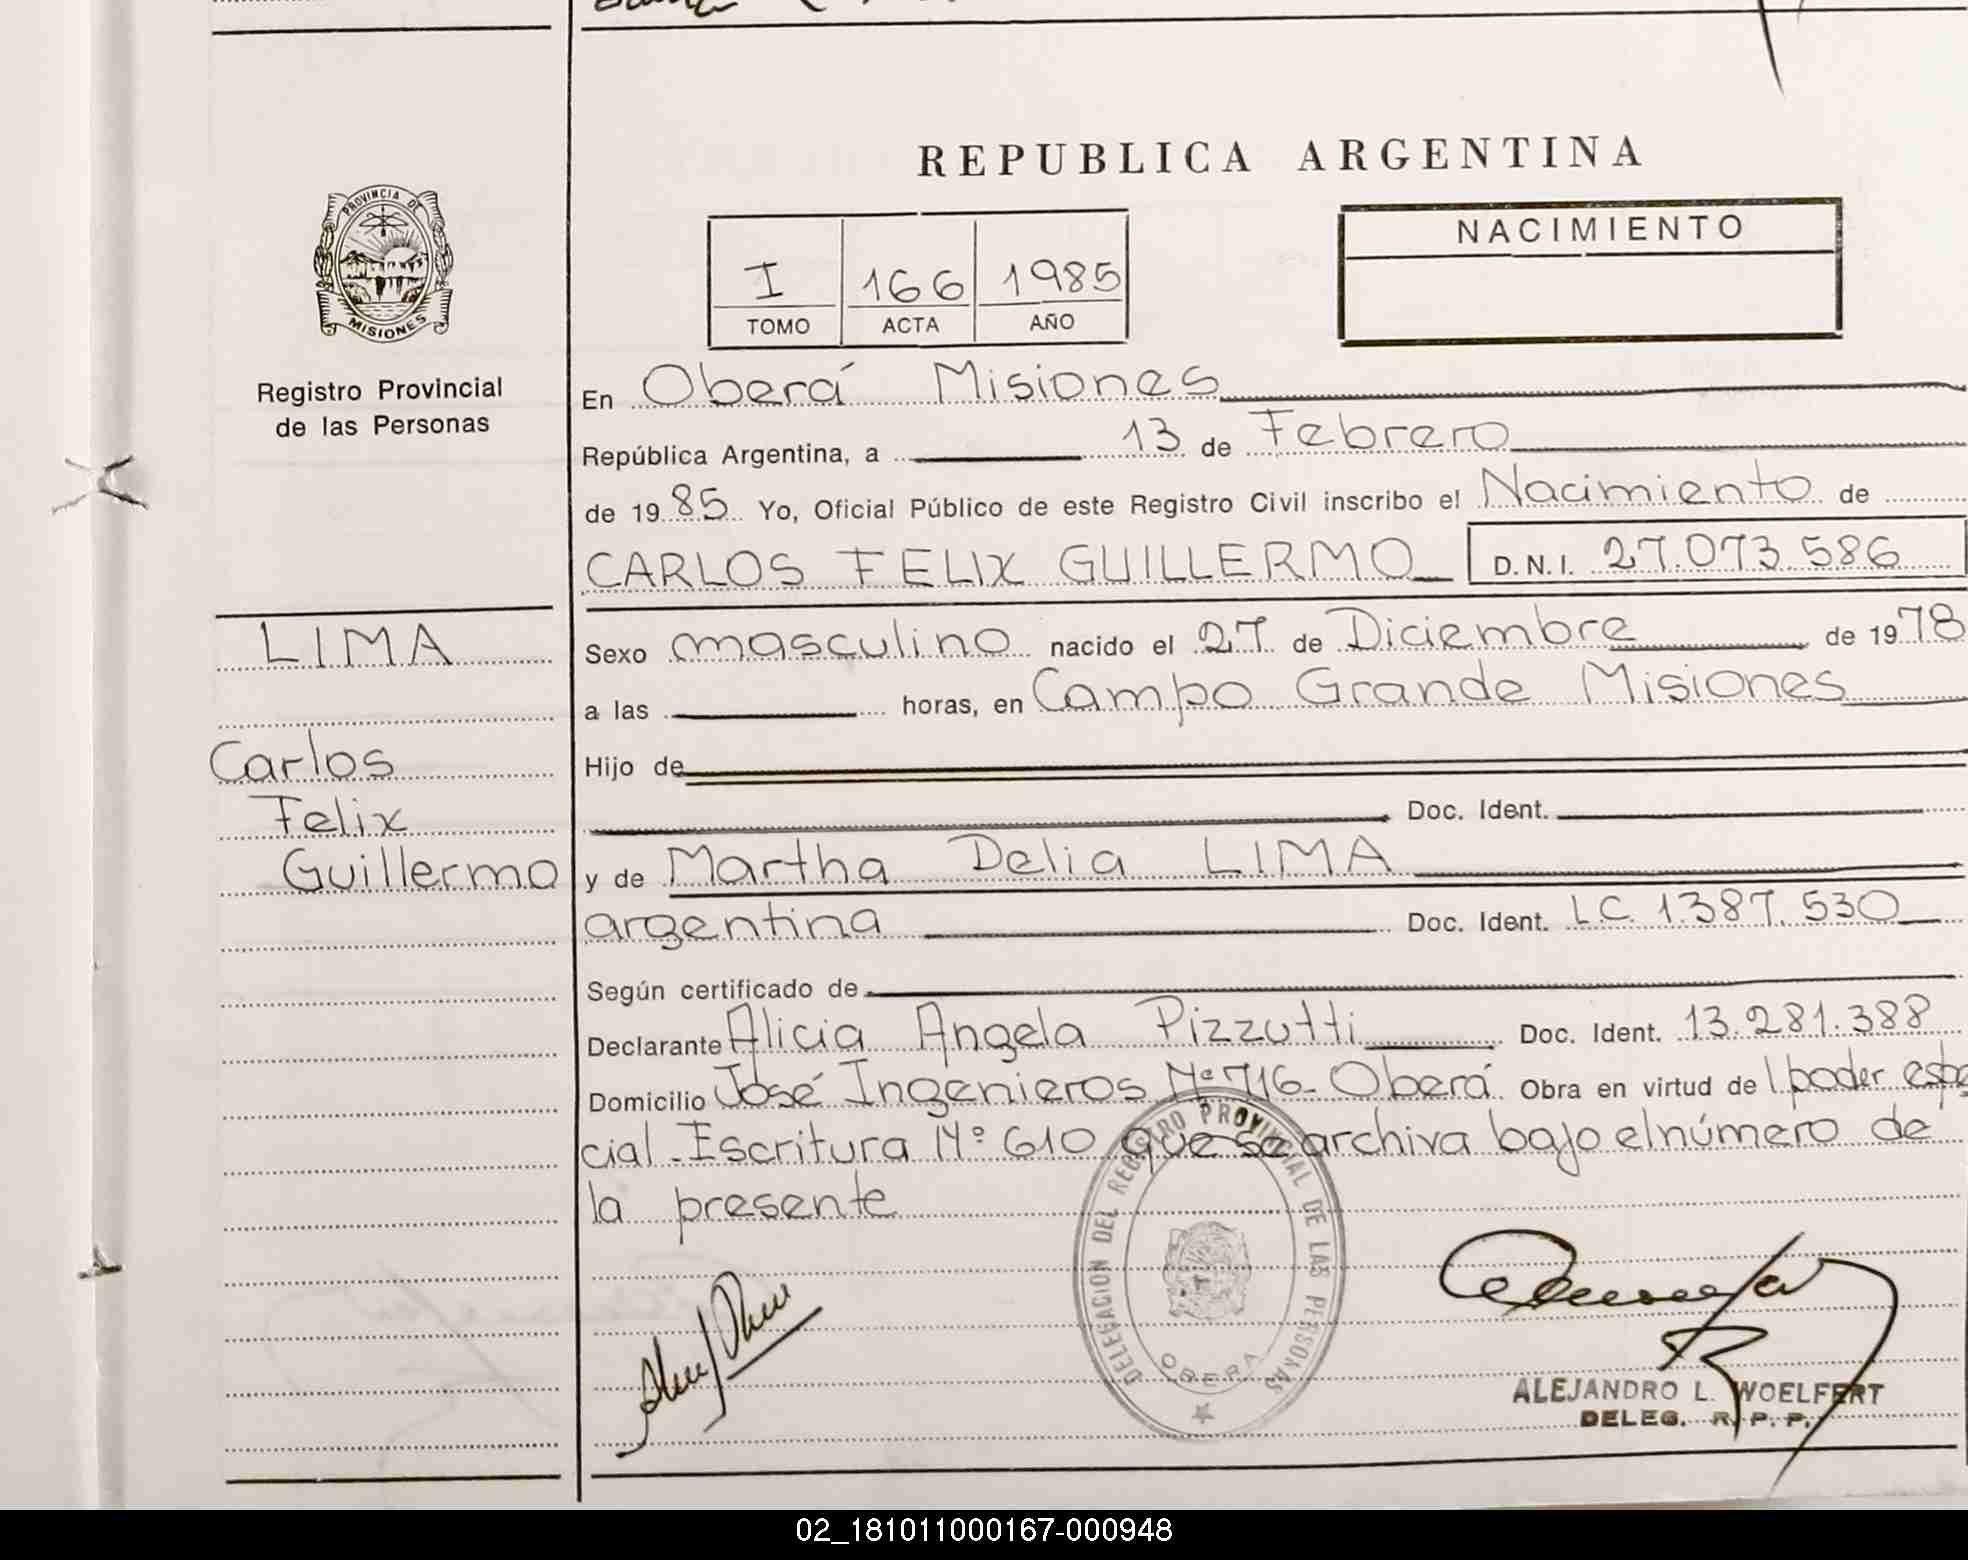 REPUBLICA ARGENTINA
PROVINCIA DE
MISIONES
Registro Provincial
de las Personas
I 166 1985
TOMO ACTA AÑO
NACIMIENTO
En Oberá Misiones
República Argentina, a 13 de Febrero
de 1985 Yo, Oficial Público de este Registro Civil inscribo el Nacimiento de
CARLOS FELIX GUILLERMO D.N.I. 27.073.586
LIMA
Carlos
Felix
Guillermo
Sexo masculino nacido el 27 de Diciembre de 1978
a las horas, en Campo Grande Misiones
Hijo de
Doc. Ident.
y de Martha Delia LIMA
argentina Doc. Ident. L.C. 1.387.530
Según certificado de
Declarante Alicia Angela Pizzutti Doc. Ident. 13.281.388
Domicilio José Ingenieros Nº 716- Oberá Obra en virtud de l poder espe
cial. Escritura Nº 610 que se archiva bajo el número de
la presente
DELEGACION DEL REGISTRO PROVINCIAL DE LAS PERSONAS
OBERA
ALEJANDRO L. WOELFERT
DELEG. R. P. P.
02_181011000167-000948